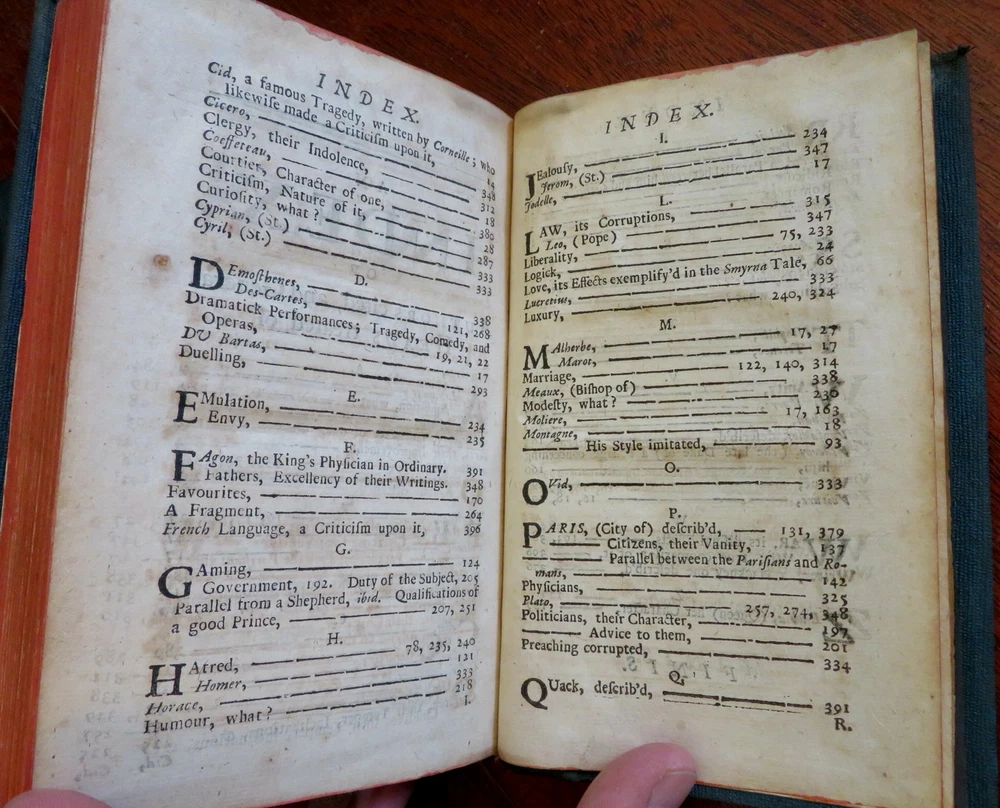 INDEX.
Cid, a famous Tragedy, written by Corneille; who
likewiſe made a Criticiſm upon it, 14
Cicero, 348
Clergy, their Indolence, 312
Coeffereau, 18
Courtier, Character of one, 380
Criticiſm, Nature of it, 28
Curioſity, what? 287
Cyprian, (St.) 333
Cyril, (St.) 333
D.
DEmoſthenes, 338
Des-Cartes, 121, 268
Dramatick Performances; Tragedy, Comedy, and
Operas, 19, 21, 22
DU Bartas, 17
Duelling, 293
E.
EMulation, 234
Envy, 235
F.
FAgon, the King's Phyſician in Ordinary. 391
Fathers, Excellency of their Writings. 348
Favourites, 170
A Fragment, 264
French Language, a Criticiſm upon it, 396
G.
GAming, 124
Government, 192. Duty of the Subject, 205
Parallel from a Shepherd, ibid. Qualifications of
a good Prince, 207, 251
H.
HAtred, 78, 235, 240
Homer, 121
Horace, 333
Humour, what? 218
I.
INDEX.
I.
JEalouſy, 234
Jerom, (St.) 347
Jodelle, 17
L.
LAW, its Corruptions, 315
Leo, (Pope) 347
Liberality, 75, 233
Logick, 24
Love, its Effects exemplify'd in the Smyrna Tale, 66
Lucretius, 333
Luxury, 240, 324
M.
MAlherbe, 17, 27
Marot, 17
Marriage, 122, 140, 314
Meaux, (Biſhop of) 338
Modeſty, what? 236
Moliere, 17, 163
Montagne, 18
His Style imitated, 93
O.
OVid, 333
P.
PARIS, (City of) deſcrib'd, 131, 379
Citizens, their Vanity, 137
Parallel between the Pariſians and Ro-
mans, 142
Phyſicians, 325
Plato, 257, 274, 348
Politicians, their Character, 197
Advice to them, 201
Preaching corrupted, 334
Q.
QUack, deſcrib'd, 391
R.